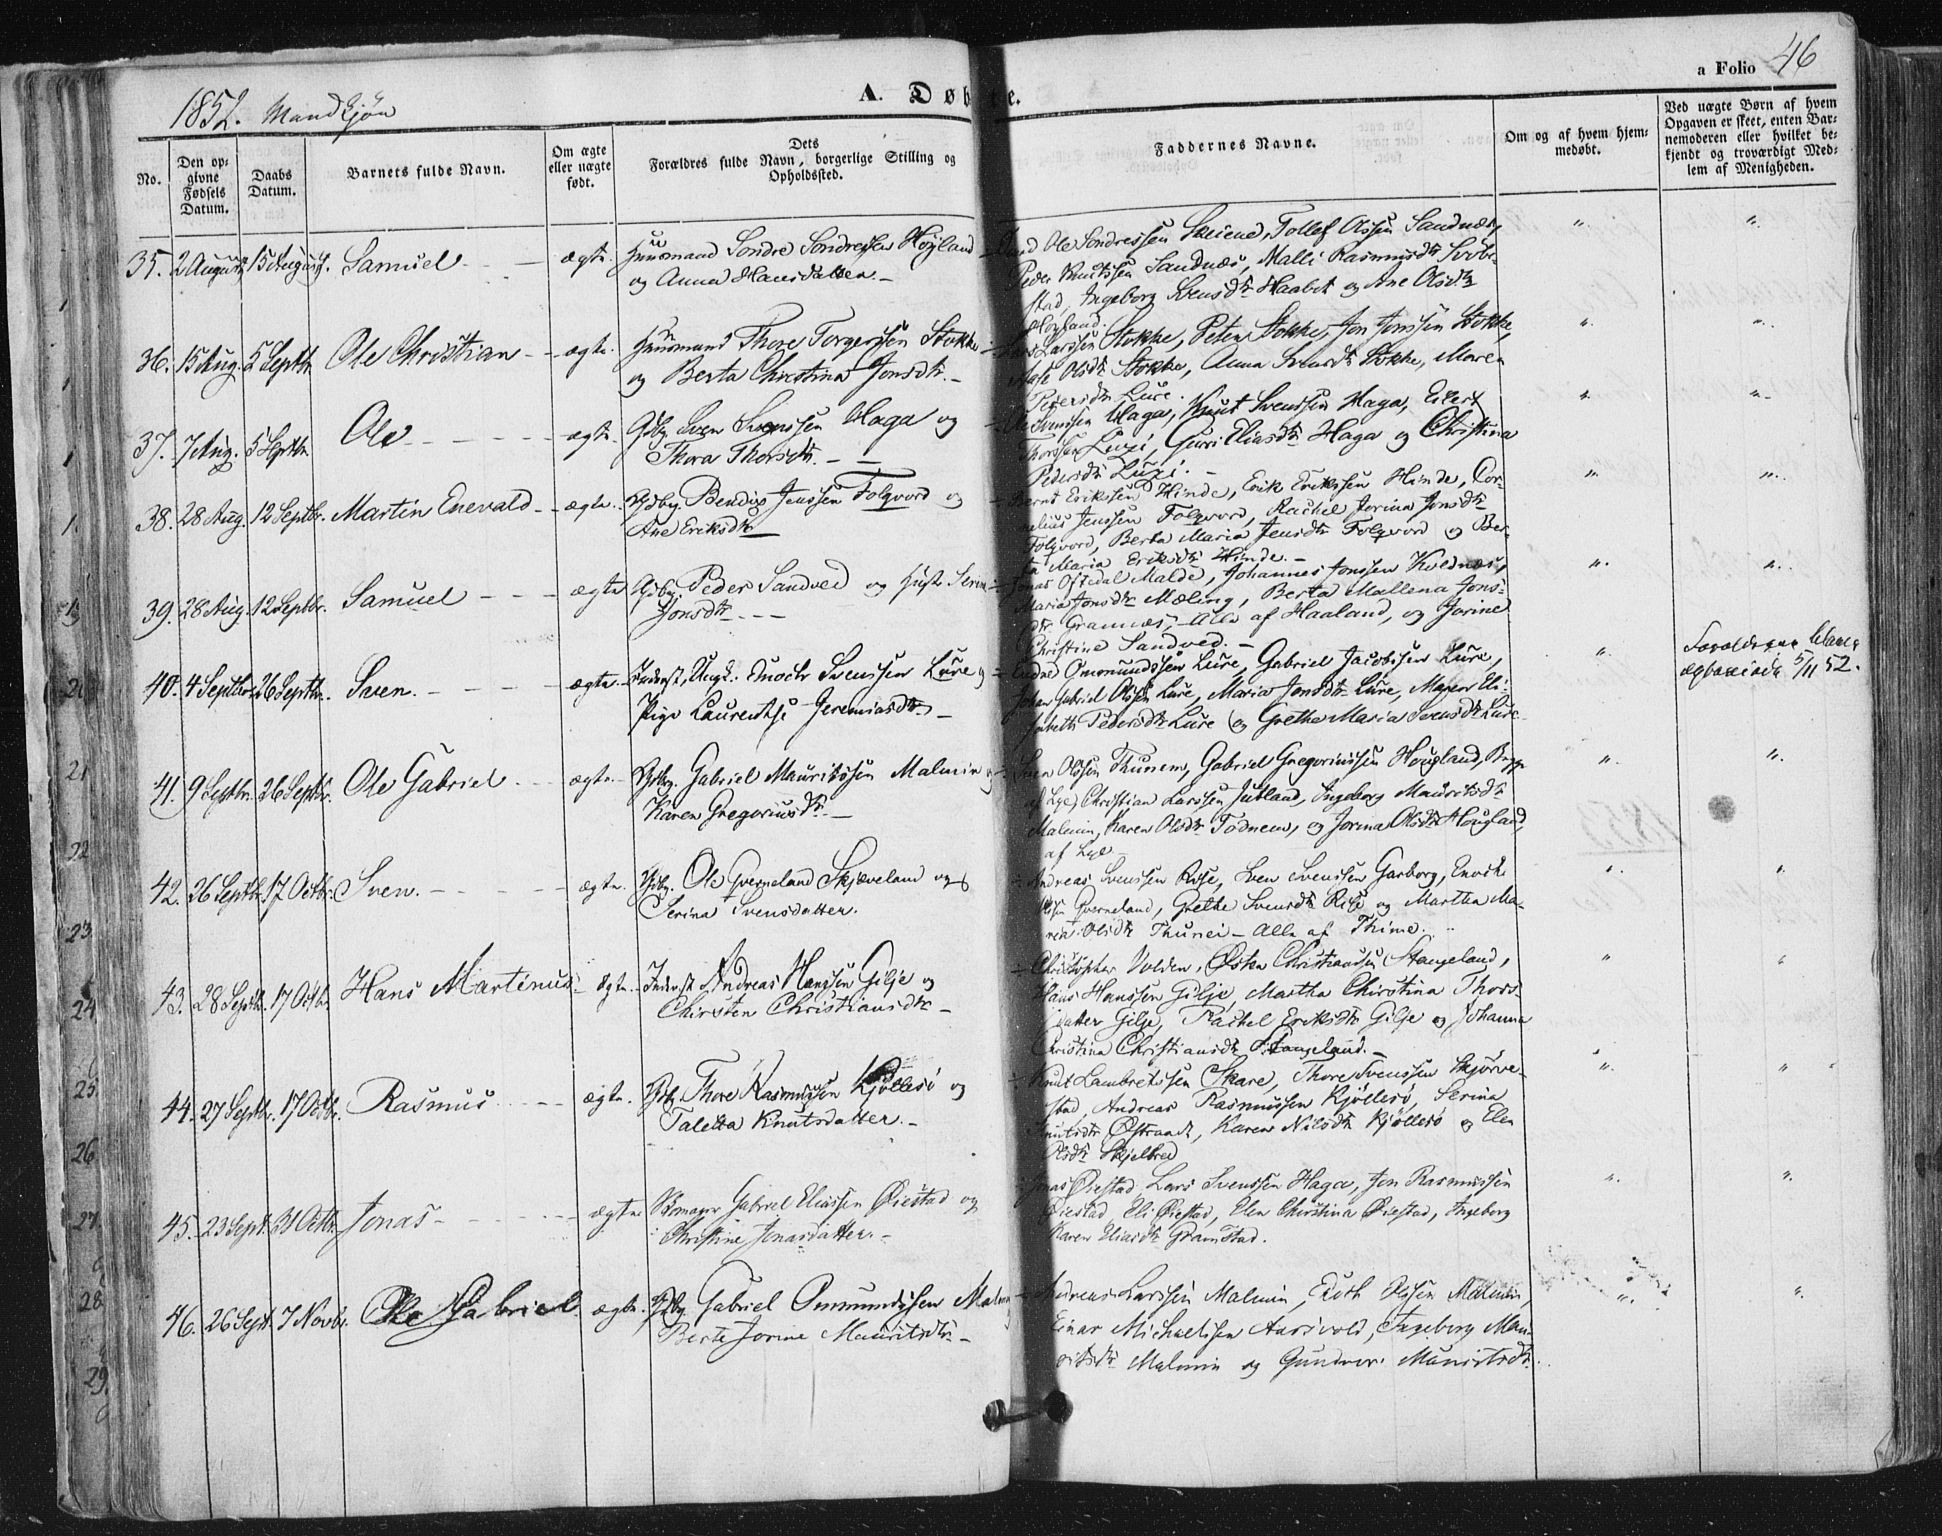 1852. Mandkjøn
A. Døbte.
a Folio 46
No.
Den op-
givne
Fødsels
Datum.
Daabs
Datum.
Barnets fulde Navn.
Om ægte
eller uægte
født.
Dets
Forældres fulde Navn, borgerlige Stilling og
Opholdssted.
Faddernes Navne.
Om og af hvem hjem-
medøbt.
Ved uægte Børn af hvem
Opgaven er skeet, enten Bar-
nemoderen eller hvilket be-
kjendt og troværdigt Med-
lem af Menigheden.
35. 2 August 15 August. Samuel ægte. Huusmand Sondre Sondresen Høyland
og Anna Hansdatter
Ole Sondressen Skeiene, Tollef Olssen Sandnæs,
Peder Knutssen Sandnæs, Malli Rasmusdtr
stad, Ingeborg Svensdtr Haabet og Ane Olsdtr
Høyland.
36. 15 Aug. 5 Septbr Ole Christian ægte. Huusmand Thore Torgersen Stokke
og Berta Christina Jonsdtr.
Lars Larssen Stokke, Peter Stokke, Jon Jonssen Stokke,
Olsdtr Stokke, Anna Svensdtr Stokke, Maren
Pedersdtr Lure.
37. 7 Aug. 5 Septbr Ole ægte. Gdbr. Sven Svenssen Haga og
Thora Thorsdtr.
Ole Svenssen Haga, Knut Svenssen Haga, Eilert
Thorssen Luzi, Guri Eliasdtr Haga og Christina
Pedersdtr Luzi.
38. 28 Aug. 12 Septbr. Martin Enevald ægte. Gdbr. Bendix Jenssen Folqvord og
Ane Eriksdtr
Bernt Erikssen Hinde, Erik Erikssen Hinde, Cor-
nelius Jenssen Folqvord, Rachel Jorina Jonsdtr
Folqvord, Berta Maria Jensdtr Folqvord og Ber-
ta Maria Eriksdtr Hinde.
39. 28 Aug. 12 Septbr. Samuel ægte Gdbr. Peder Sandved og Hust. Serina
Jonsdtr
Jonas Oftedal Malde, Johannes Jonssen Kvednæs,
Maria Jonsdtr Mæling, Berta Mallena Jons-
dtr Grannæs, Alle af Haaland, og Jorine
Christine Sandved.
40. 4 Septbr. 26 Septbr. Sven. ægte. Inderst, Ungk. Enoch Svenssen Lure og
Pige Laurentse Jeremiasdtr
Endre Omundssen Lure, Gabriel Jacobssen Lure,
Johan Gabriel Olssen Lure, Maria Jonsdtr Lure, Maren Eli-
sabeth Pedersdtr Lure og Grethe Maria Svensdtr Lure
Forældrene bleve
ægteviede 5/11 52.
41. 9 Septbr. 26 Septbr. Ole Gabriel ægte. Gdbr. Gabriel Mauritssen Malmin og
Karen Gregoriusdtr.
Sven Olssen Thunem, Gabriel Gregoriussen Hougland,
af Lye, Christian Larssen Jutland, Ingeborg Mauritsdtr
Malmin, Karen Olsdtr Todnem, og Jorina Olsdtr Hougland,
af Lye
42. 26 Septbr. 17 Octbr. Sven. ægte. Gdbr. Ole Qverneland Skjæveland og
Serina Svensdatter.
Andreas Svenssen Rise, Sven Svenssen Garborg, Enock
Olssen Qverneland, Grethe Svensdtr Rise og Martha Ma-
ria Olsdtr Thunei - Alle af Thime.
43. 28 Septbr. 17 Octbr. Hans Martinus ægte. Inderst Andreas Hanssen Gilje og
Chirsten Christiansdtr
Christopher Volden, Østen Christianssen Stangeland,
Hans Hanssen Gilje, Martha Christina Thors-
datter Gilje, Rachel Eriksdtr Gilje og Johanna
Christina Christiansdtr Stangeland.
44. 27 Septbr. 17 Octbr. Rasmus ægte. Gdbr. Thore Rasmussen Kjøllesø og
Taletta Knutsdatter.
Knut Lambretssen Skare, Thore Svenssen Skjørve-
stad, Andreas Rasmussen Kjøllesø, Serina
Knutsdtr Østraadt, Karen Nilsdtr Kjøllesø og Elen
Olsdtr Skjelbred
45. 23 Sept. 31 Octbr. Jonas ægte Skomager Gabriel Eliassen Øiestad og
Christine Jonasdatter.
Jonas Øiestad, Lars Svenssen Haga, Jon Rasmussen
Øiestad, Eli Øiestad, Elen Christina Øiestad, Ingeborg
Karen Eliasdtr Gramstad.
46. 26 Sept. 7 Novbr. Ole Gabriel. ægte. Gdbr. Gabriel Ommundssen Malmin
Berte Jorine Mauritsdtr
Andreas Larssen Malmin, Olssen Malmin,
Einar Michaelssen Aarsvold, Ingeborg Mau-
ritsdtr Malmin og Gundvor Mauritsdtr.